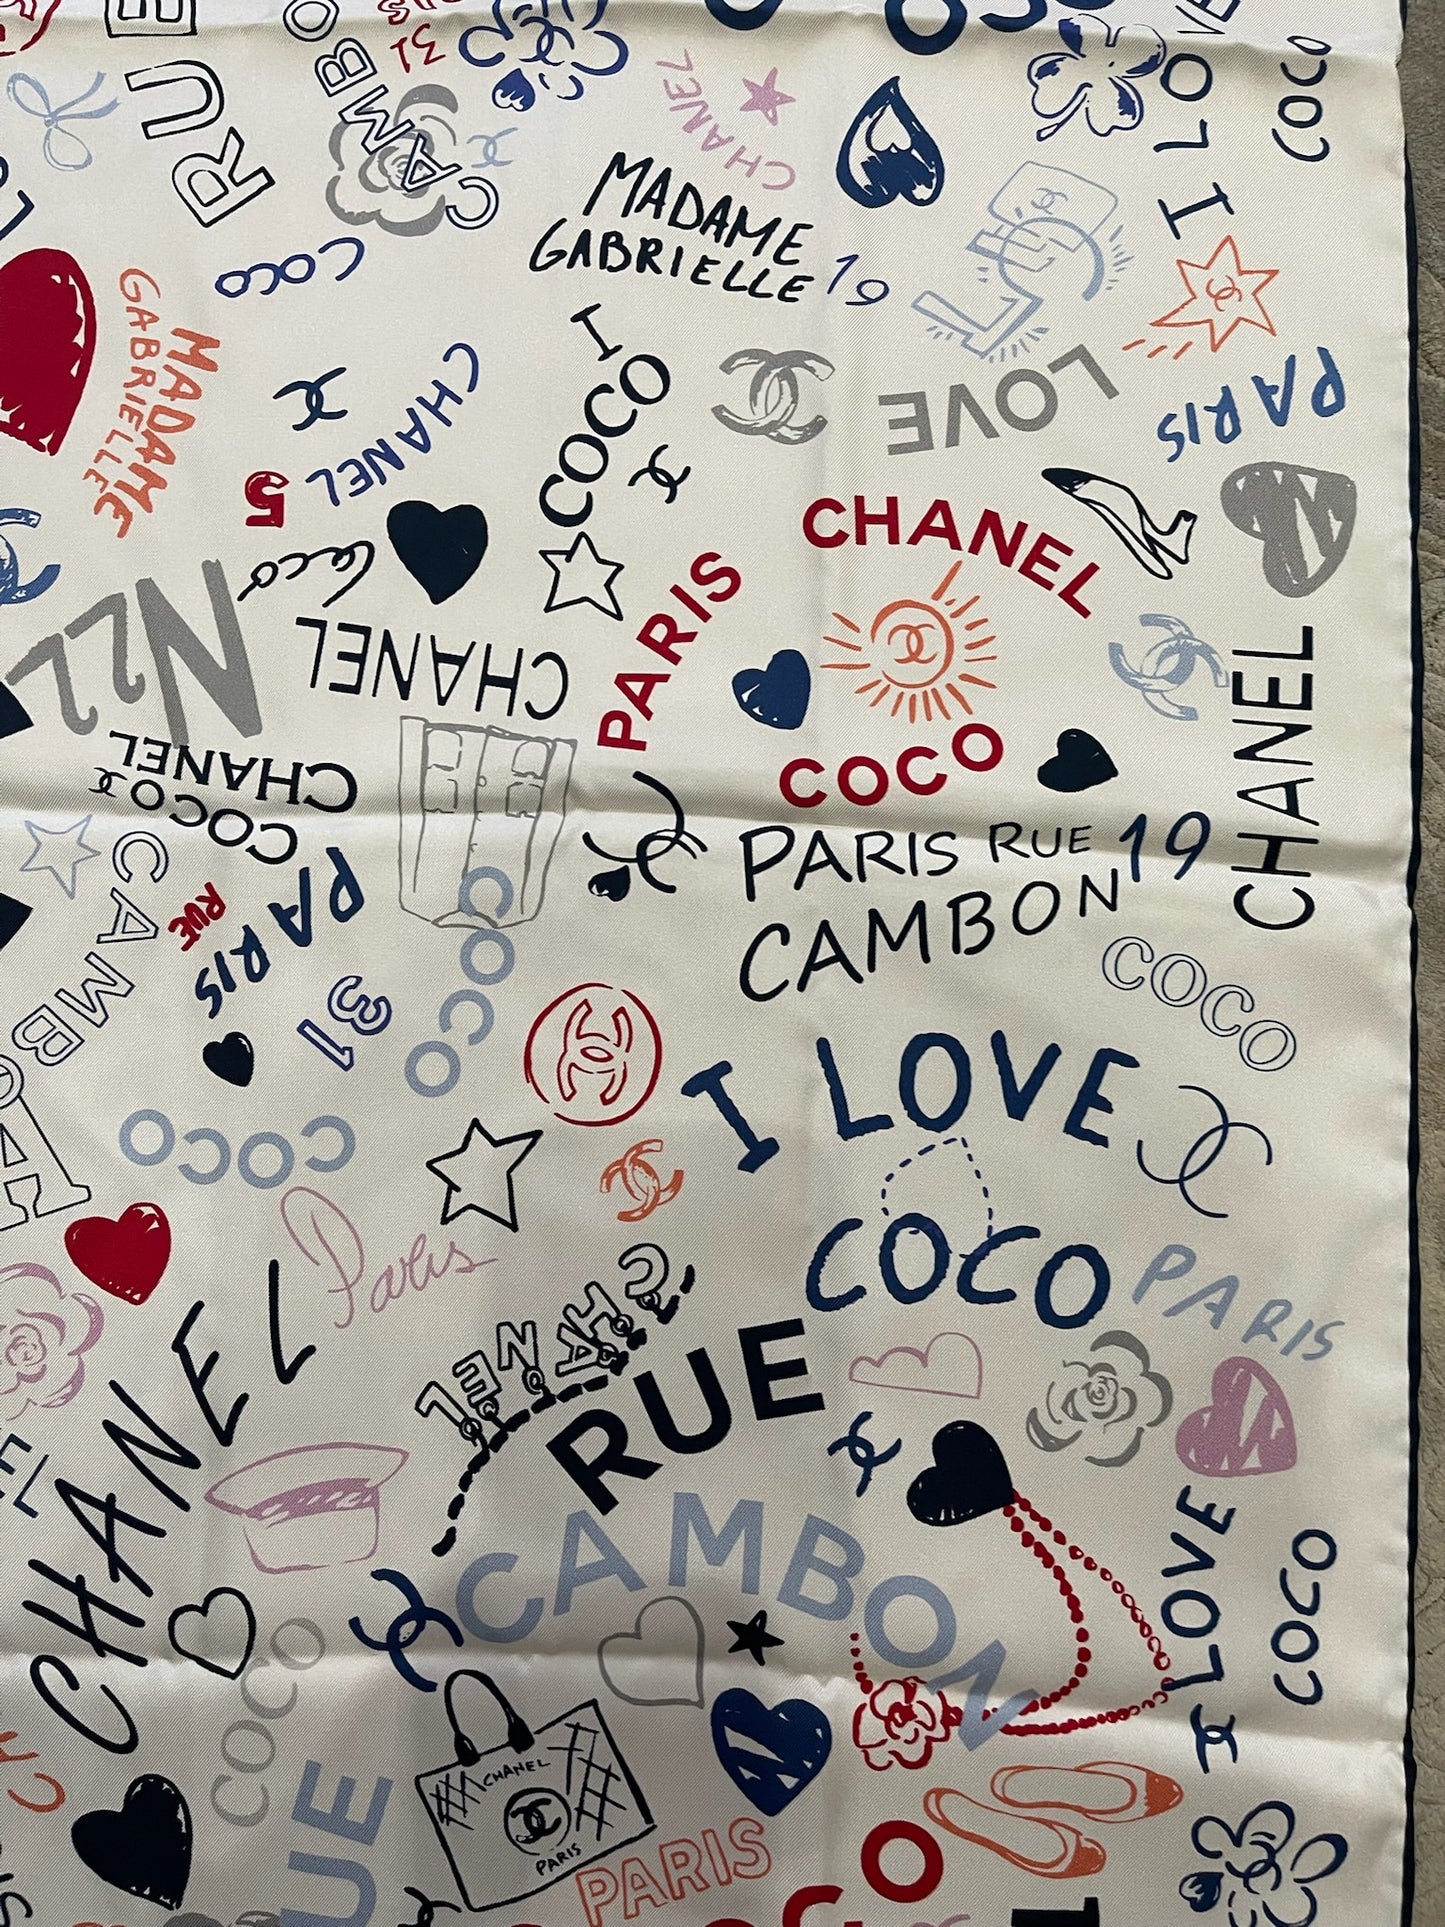 RUE
CAMBO
31
CHANEL
I LOVE
COCO
MADAME
GABRIELLE
19
COCO
MADAME
GABRIELLE
CHANEL
5
I
COCO
LOVE
PARIS
Coco
N22
CHANEL
CHANEL
PARIS
COCO
CHANEL
CHANEL
COCO
PARIS
RUE
CAMBON
31
COCO
PARIS RUE 19
CAMBON
COCO
I LOVE
COCO
PARIS
COCO
Paris
CHANEL
CHANEL
RUE
CAMBON
I LOVE
COCO
COCO
CHANEL
PARIS
PARIS
UE